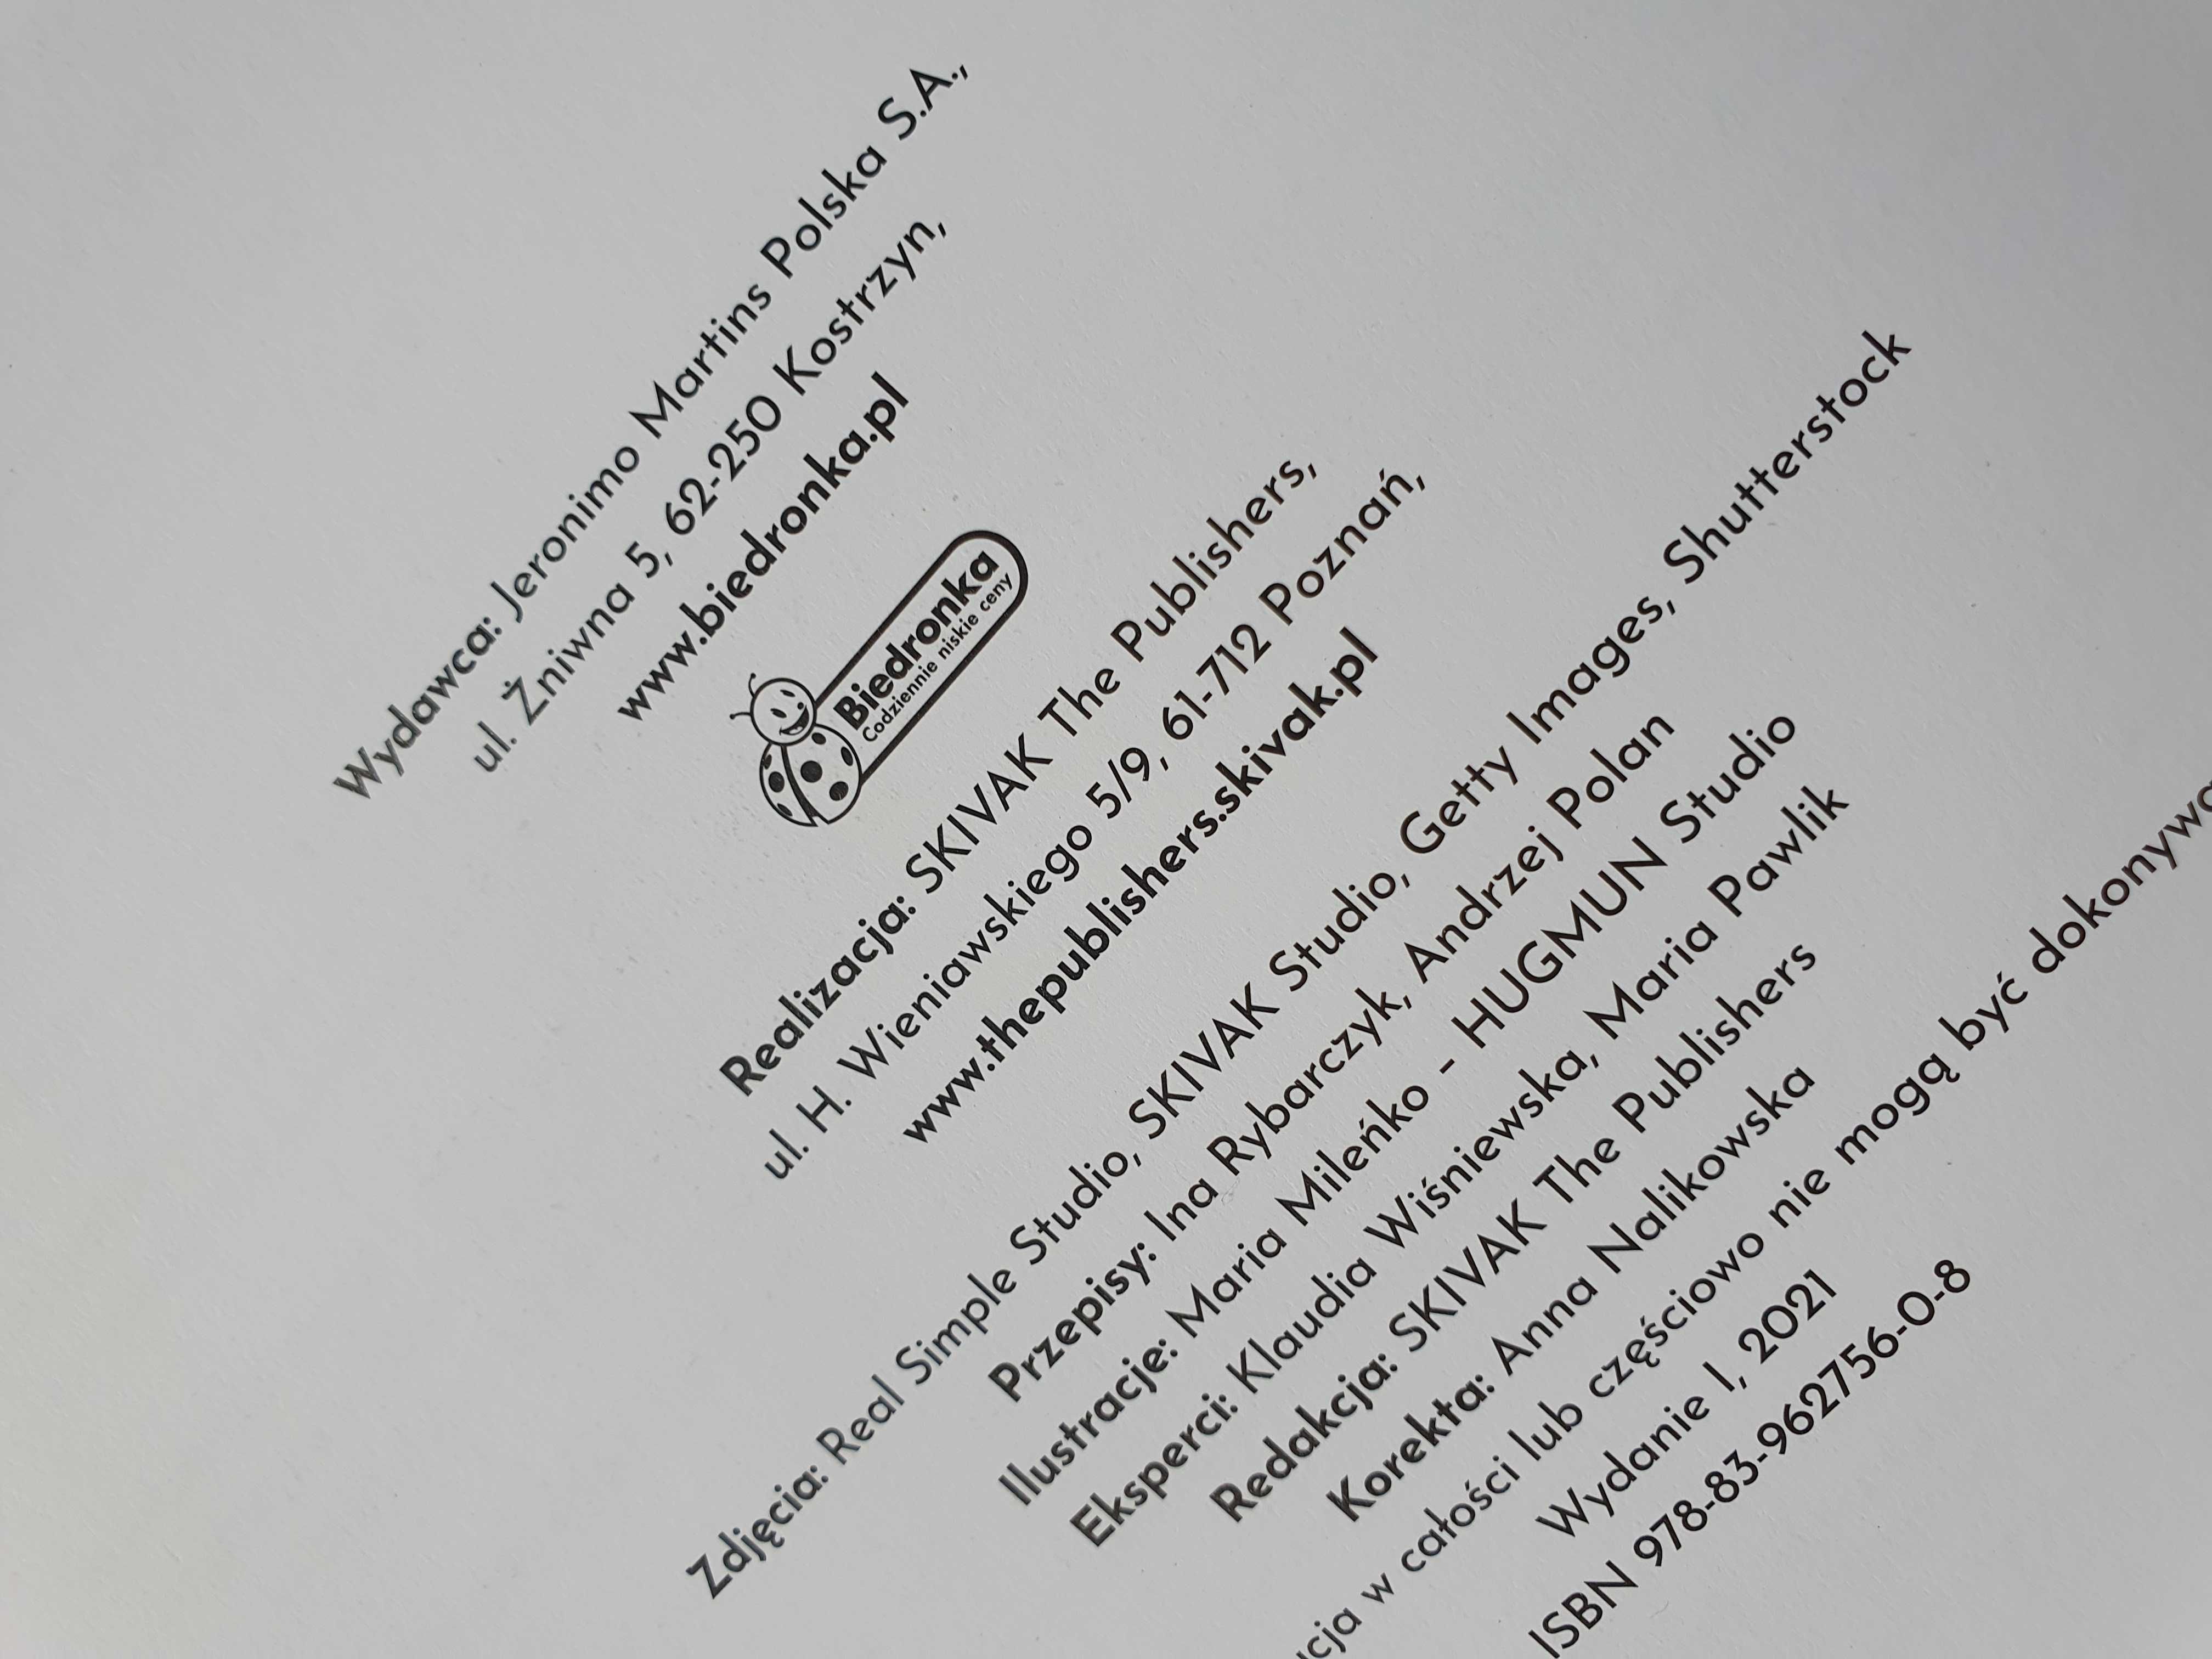 Wydawca: Jeronimo Martins Polska S.A.,
ul. Żniwna 5, 62-250 Kostrzyn,
www.biedronka.pl
Biedronka
Codziennie niskie ceny
Realizacja: SKIVAK The Publishers,
ul. H. Wieniawskiego 5/9, 61-712 Poznań,
www.thepublishers.skivak.pl
Zdjęcia: Real Simple Studio, SKIVAK Studio, Getty Images, Shutterstock
Przepisy: Ina Rybarczyk, Andrzej Polan
Ilustracje: Maria Mileńko - HUGMUN Studio
Eksperci: Klaudia Wiśniewska, Maria Pawlik
Redakcja: SKIVAK The Publishers
Korekta: Anna Nalikowska
w całości lub częściowo nie mogą być
Wydanie I, 2021
ISBN 978-83-962756-0-8